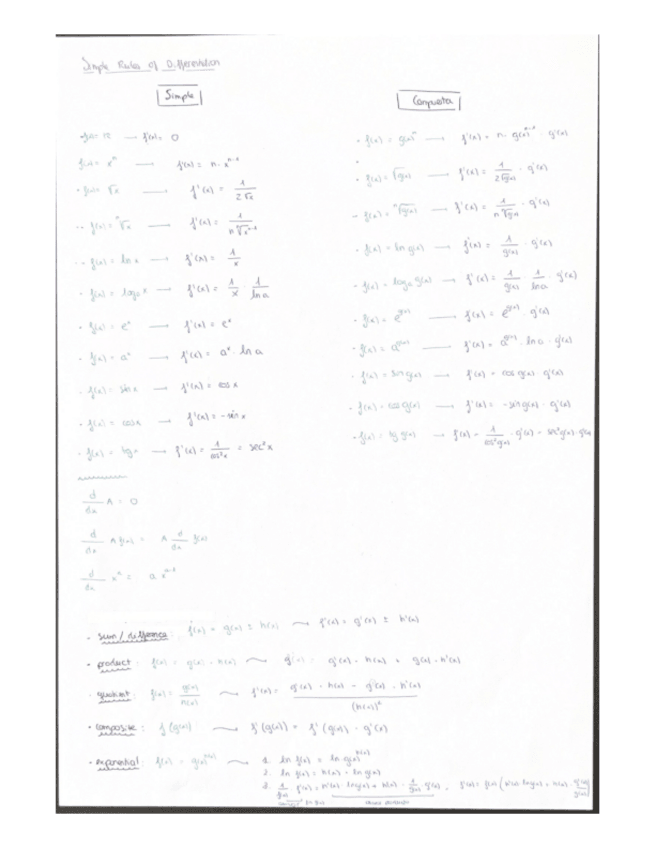 Simple Rules of Differentiation
Simple
f(x) = 12 → f'(x) = 0
f(x) = xⁿ → f'(x) = n · xⁿ⁻¹
· f(x) = √x → f'(x) = 1/(2√x)
· f(x) = ⁿ√x → f'(x) = 1/(n ⁿ√xⁿ⁻¹)
· f(x) = ln x → f'(x) = 1/x
· f(x) = logₐ x → f'(x) = 1/x · 1/ln a
· f(x) = eˣ → f'(x) = eˣ
· f(x) = aˣ → f'(x) = aˣ · ln a
· f(x) = sin x → f'(x) = cos x
· f(x) = cos x → f'(x) = -sin x
· f(x) = tg x → f'(x) = 1/cos²x = sec²x
d/dx A = 0
d/dx A f(x) = A d/dx f(x)
d/dx xⁿ =
Compuesta
· f(x) = g(x)ⁿ → f'(x) = n · g(x)ⁿ⁻¹ · g'(x)
· f(x) = √g(x) → f'(x) = 1/(2√g(x)) · g'(x)
· f(x) = ⁿ√g(x) → f'(x) = 1/(n ⁿ√g(x)) · g'(x)
· f(x) = ln g(x) → f'(x) = 1/g(x) · g'(x)
· f(x) = logₐ g(x) → f'(x) = 1/g(x) · 1/ln a · g'(x)
· f(x) = e^g(x) → f'(x) = e^g(x) · g'(x)
· f(x) = a^g(x) → f'(x) = a^g(x) · ln a · g'(x)
· f(x) = sin g(x) → f'(x) = cos g(x) · g'(x)
· f(x) = cos g(x) → f'(x) = -sin g(x) · g'(x)
· f(x) = tg g(x) → f'(x) = 1/cos²g(x) · g'(x) = sec²g(x) · g'(x)
· sum / difference : f(x) = g(x) ± h(x) → f'(x) = g'(x) ± h'(x)
· product : f(x) = g(x) · h(x) → g'(x) · h(x) + g(x) · h'(x)
· quotient : f(x) = g(x)/h(x) → f'(x) = (g'(x) · h(x) - g(x) · h'(x))/(h(x))²
· composite : f(g(x)) → f'(g(x)) = f'(g(x)) · g'(x)
· exponential : f(x) = g(x)^h(x) → 1. ln f(x) = ln g(x)^h(x)
2. ln f(x) = h(x) · ln g(x)
3. f'(x) = h'(x) · ln g(x) + h(x) · 1/g(x) · g'(x)